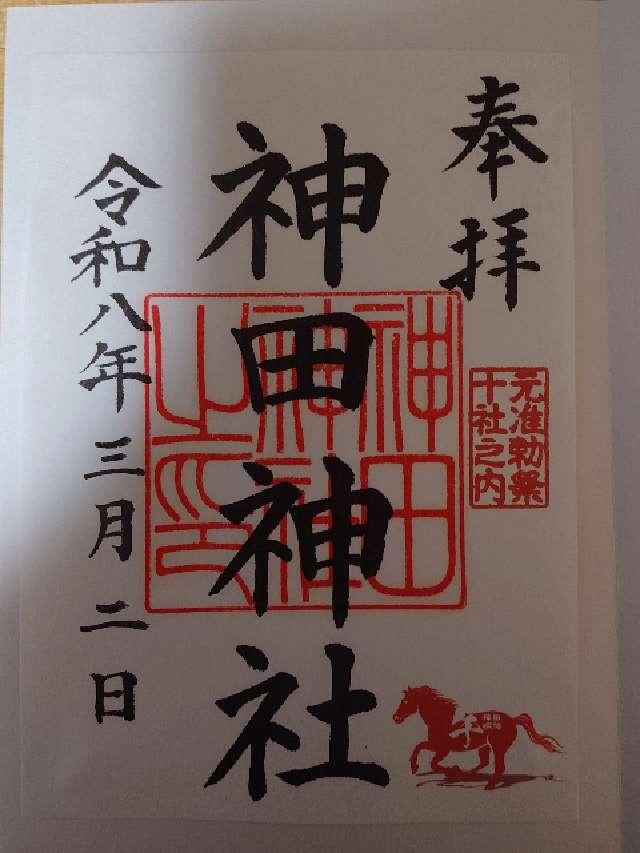 奉拝
元准勅祭
十社之内
神田神社
神田
神社
之印
令和八年三月二日